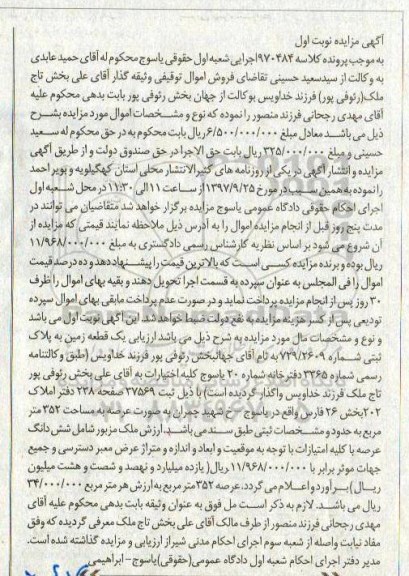 آگهی مزایده نوبت اول
به موجب پرونده کلاسه ۹۷۰۴۸۴ اجرایی شعبه اول حقوقی یاسوج محکوم له آقای حمید عابدی
به وکالت از سیدسعید حسینی تقاضای فروش اموال توقیفی وثیقه گذار آقای علی بخش تاج
ملک(رئوفی پور) فرزند خداویس بوکالت از جهان بخش رئوفی پور بابت بدهی محکوم علیه
آقای مهدی رجحانی فرزند منصور را نموده که نوع و مشخصات اموال مورد مزایده بشرح
ذیل می باشد معادل مبلغ ۶/۵۰۰/۰۰۰/۰۰۰ ریال بابت محکوم به در حق محکوم له سعید
حسینی و مبلغ ۳۲۵/۰۰۰/۰۰۰ ریال بابت حق الاجرا در حق صندوق دولت و از طریق آگهی
مزایده و انتشار آگهی در یکی از روزنامه های کثیرالانتشار محلی استان کهگیلویه و بویر احمد
را نموده به همین سبب در مورخ ۱۳۹۷/۹/۲۵ از ساعت ۱۱ الی ۱۱:۳۰ در محل شعبه اول
اجرای احکام حقوقی دادگاه عمومی یاسوج مزایده برگزار خواهد شد متقاضیان می توانند در
مدت پنج روز قبل از انجام مزایده اموال را به آدرس ذیل ملاحظه نمایند قیمتی که مزایده از
آن شروع می شود بر اساس نظریه کارشناس رسمی دادگستری به مبلغ ۱۱/۹۶۸/۰۰۰/۰۰۰
ریال بوده و برنده مزایده کسی است که بالاترین قیمت را پیشنهاد دهد و ده درصد قیمت
اموال را فی المجلس به عنوان سپرده به قسمت اجرا تحویل دهند و بقیه بهای اموال را ظرف
۳۰ روز پس از انجام مزایده پرداخت نماید و در صورت عدم پرداخت مابقی بهای اموال سپرده
تودیعی پس از کسر هزینه مزایده به نفع دولت ضبط خواهد شد. این آگهی نوبت اول می باشد
و نوع و مشخصات مال مورد مزایده به شرح ذیل می باشد ارزیابی یک قطعه زمین به پلاک
ثبتی شماره ۷۲۹/۲۶۰۹ به نام آقای جهانبخش رئوفی پور فرزند خداویس (طبق وکالتنامه
رسمی شماره ۳۳۶۵ دفترخانه شماره ۲۰ یاسوج کلیه اختیارات به آقای علی بخش رئوفی پور
تاج ملک فرزند خداویس واگذار گردیده است) با ذیل ثبت ۳۷۵۶۹ صفحه ۲۳۸ دفتر املاک
۲۰۲ بخش ۲۶ فارس واقع در یاسوج خ شهید چمران به صورت عرصه به مساحت ۳۵۲ متر
مربع به حدود و مشخصات ثبتی طبق سند می باشد. ارزش ملک مزبور شامل شش دانگ
عرصه با کلیه امتیازات با توجه به موقعیت و ابعاد و اندازه و متراژ عرض معبر دسترسی و جمیع
جهات موثر برابر با ۱۱/۹۶۸/۰۰۰/۰۰۰ ریال( یازده میلیارد و نهصد و شصت و هشت میلیون
ریال) برآورد و اعلام می گردد. عرصه ۳۵۲ متر مربع به ارزش هر متر مربع ۳۴/۰۰۰/۰۰۰
ریال می باشد. لازم به ذکر است مل فوق به عنوان وثیقه بابت بدهی محکوم علیه آقای
مهدی رجحانی فرزند منصور از طرف مالک آقای علی بخش تاج ملک معرفی گردیده که وفق
مفاد نیابت واصله از شعبه سوم اجرای احکام مدنی شیراز ارزیابی و مزایده گذاشته شده است.
مدیر دفتر اجرای احکام شعبه اول دادگاه عمومی(حقوقی) یاسوج - ابراهیمی